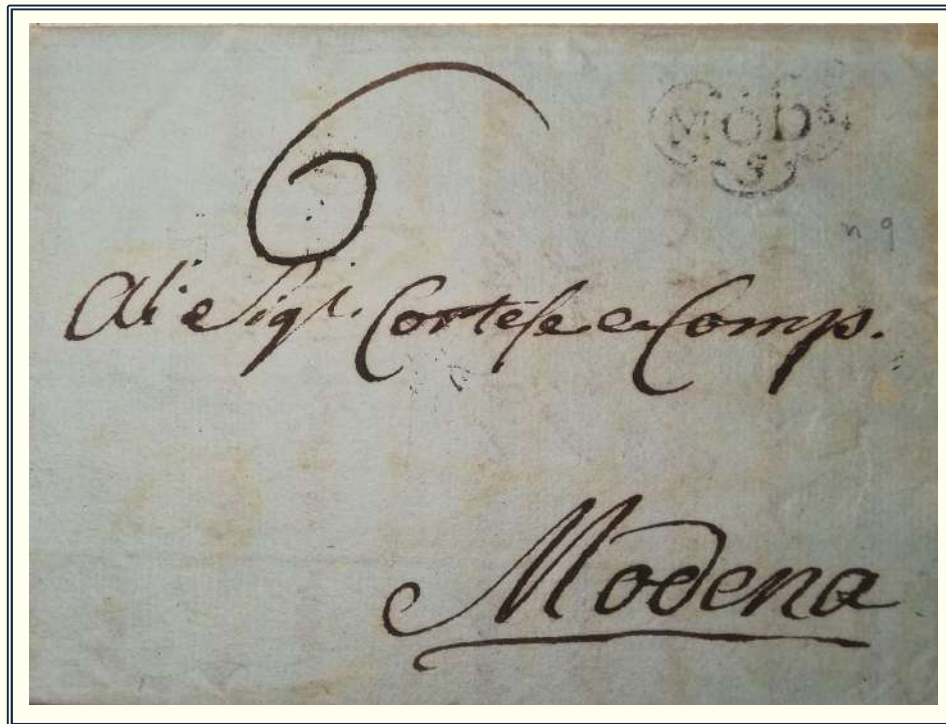 Mob
n 9
Ali Sigri. Cortese e Comp.
Modena